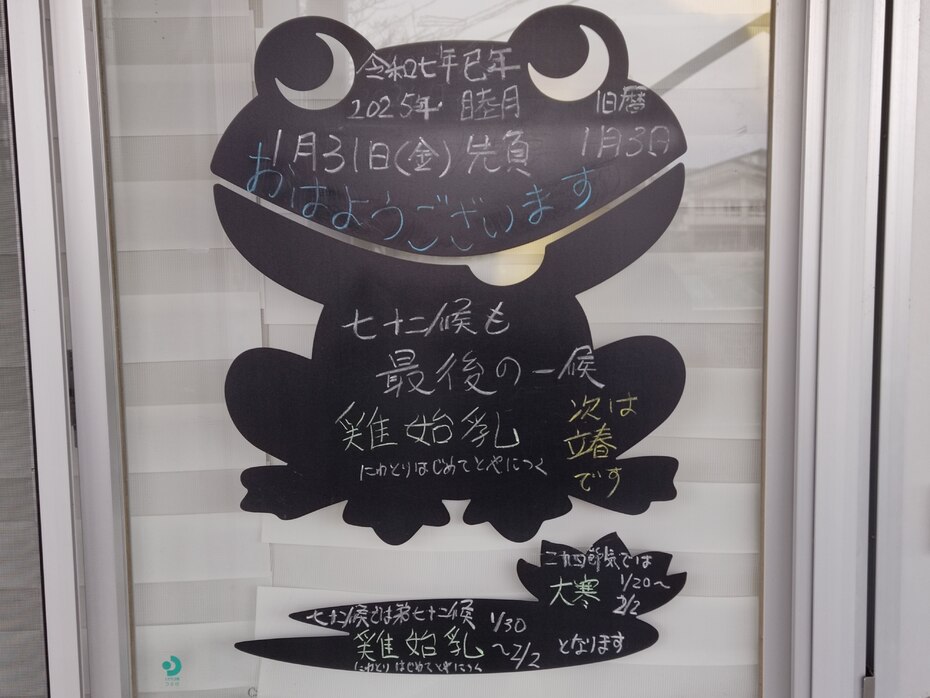 令和七年巳年
2025年 睦月 旧暦
1月31日(金) 先負 1月3日
おはようございます
七十二候も
最後の一候
雞始乳
にわとりはじめてとやにつく
次は
立春
です
二十四節気では
大寒 1/20〜
2/2
七十二候では第七十二候 1/30
雞始乳 〜2/2 となります
にわとりはじめてとやにつく